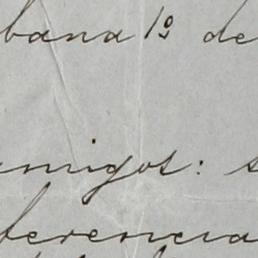 bana 1º de
amigos:
ferencia